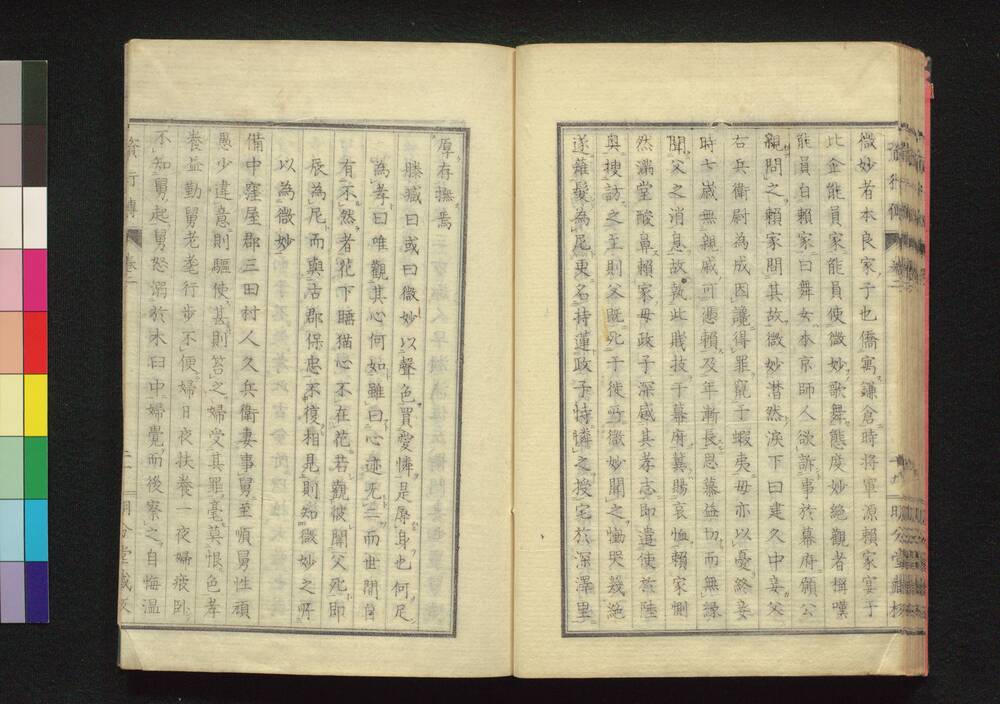 微妙者本良家子也僑寓鎌倉時将軍源賴家宴于
比企能員家能員使微妙歌舞態度妙絶觀者稱嘆
能員白賴家曰舞女本京師人欲訴事於幕府願公
親問之賴家問其故微妙潜然涙下曰建久中妾父
右兵衛尉為成因讒得罪竄于蝦夷母亦以憂終妾
時七歳無親戚可憑賴及年漸長思慕益切而無緣
聞父之消息故執此賤技干幕府冀賜哀恤賴家惻
然満堂酸鼻賴家母政子深感其孝志即遣使於陸
奥捜訪之至則父既死于徙所微妙聞之慟哭幾絶
遂薙髮為尼更名持蓮政子特憐之授宅於深澤里
厚存撫焉
滕臧曰或曰微妙以聲色買愛憐是辱身也何足
為孝曰唯觀其心何如雖曰心迹无二而世間自
有不然者花下睡猫心不在花若觀彼聞父死即
辰為尼而與古郡保忠不復相見則知微妙之所
以為微妙
備中窪屋郡三田村人久兵衛妻事舅至順舅性頑
愚少違意則驅使甚則笞之婦受其罪毫莫恨色孝
養益勤舅老耄行歩不便婦日夜扶養一夜婦疲卧
不知舅起舅怒溺於木臼中婦覺而後察之自悔温